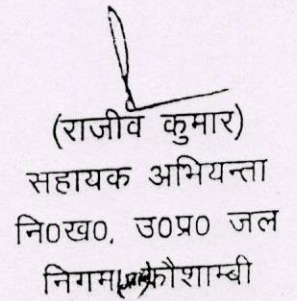 (राजीव कुमार)
सहायक अभियन्ता
नि0ख0, उ0प्र0 जल
निगम कौशाम्बी